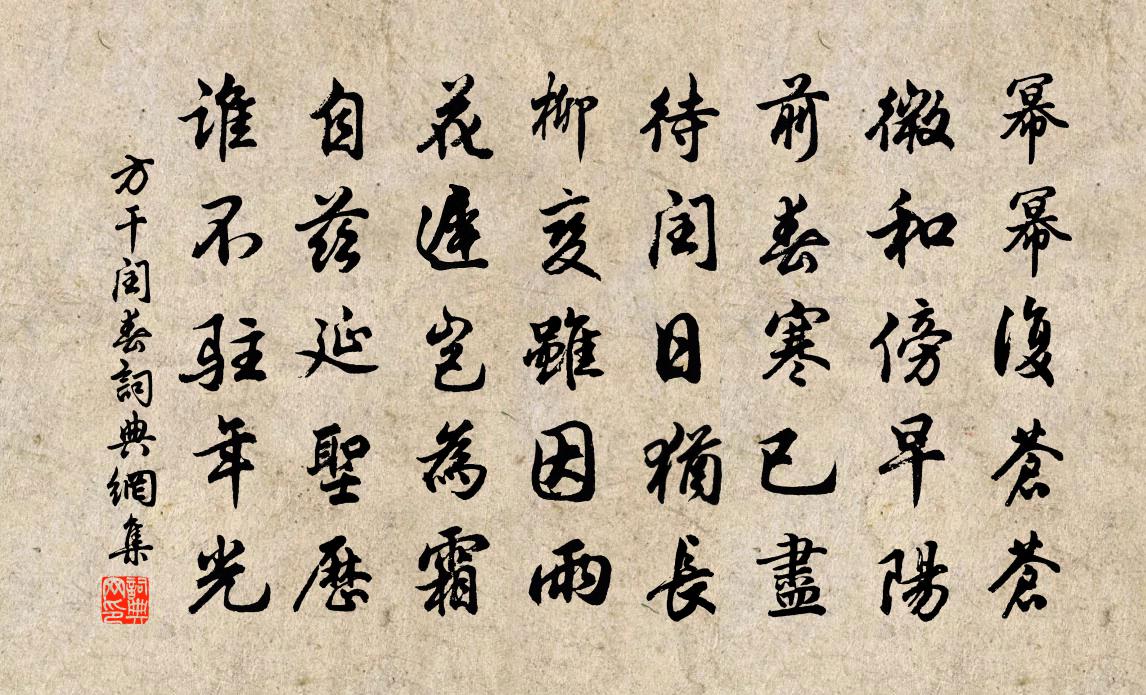 冪冪復蒼蒼
微和傍早陽
前春寒已盡
待閏日猶長
柳變雖因雨
花遲豈為霜
自茲延聖歷
誰不駐年光
方干閏春詞典網集
詞典網印